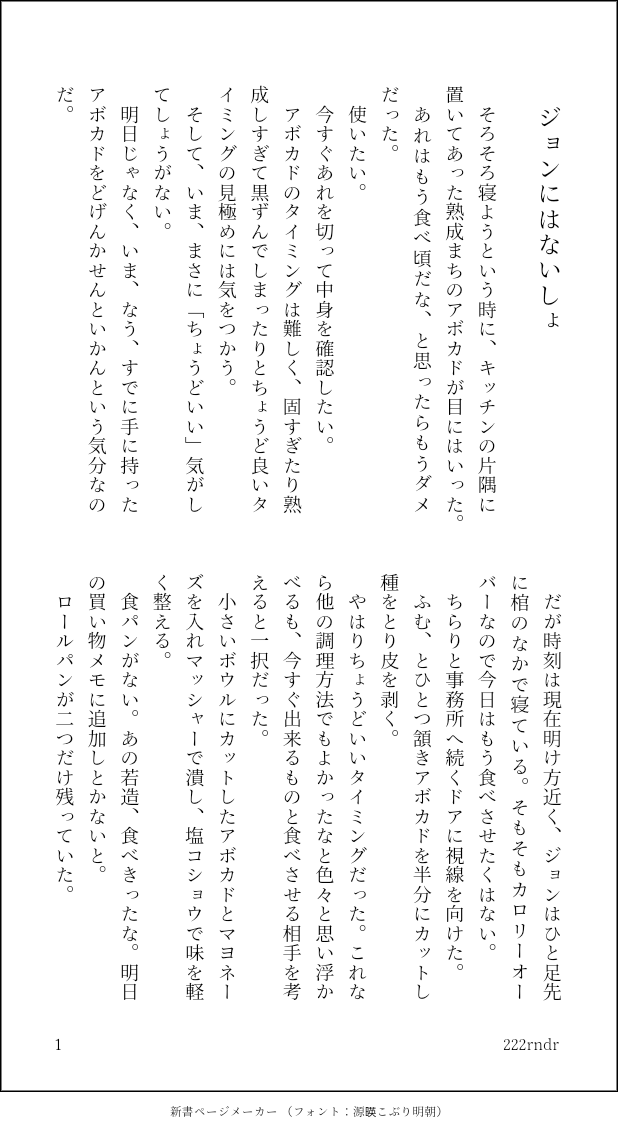 ジョンにはないしょ
そろそろ寝ようという時に、キッチンの片隅に
置いてあった熟成まちのアボカドが目にはいった。
あれはもう食べ頃だな、と思ったらもうダメ
だった。
使いたい。
今すぐあれを切って中身を確認したい。
アボカドのタイミングは難しく、固すぎたり熟
成しすぎて黒ずんでしまったりとちょうど良いタ
イミングの見極めには気をつかう。
そして、いま、まさに「ちょうどいい」気がし
てしょうがない。
明日じゃなく、いま、なう、すでに手に持った
アボカドをどげんかせんといかんという気分なの
だ。
だが時刻は現在明け方近く、ジョンはひと足先
に棺のなかで寝ている。そもそもカロリーオー
バーなので今日はもう食べさせたくはない。
ちらりと事務所へ続くドアに視線を向けた。
ふむ、とひとつ頷きアボカドを半分にカットし
種をとり皮を剥く。
やはりちょうどいいタイミングだった。これな
ら他の調理方法でもよかったなと色々と思い浮か
べるも、今すぐ出来るものと食べさせる相手を考
えると一択だった。
小さいボウルにカットしたアボカドとマヨネー
ズを入れマッシャーで潰し、塩コショウで味を軽
く整える。
食パンがない。あの若造、食べきったな。明日
の買い物メモに追加しとかないと。
ロールパンが二つだけ残っていた。
1
222rndr
新書ページメーカー（フォント：源暎こぶり明朝）